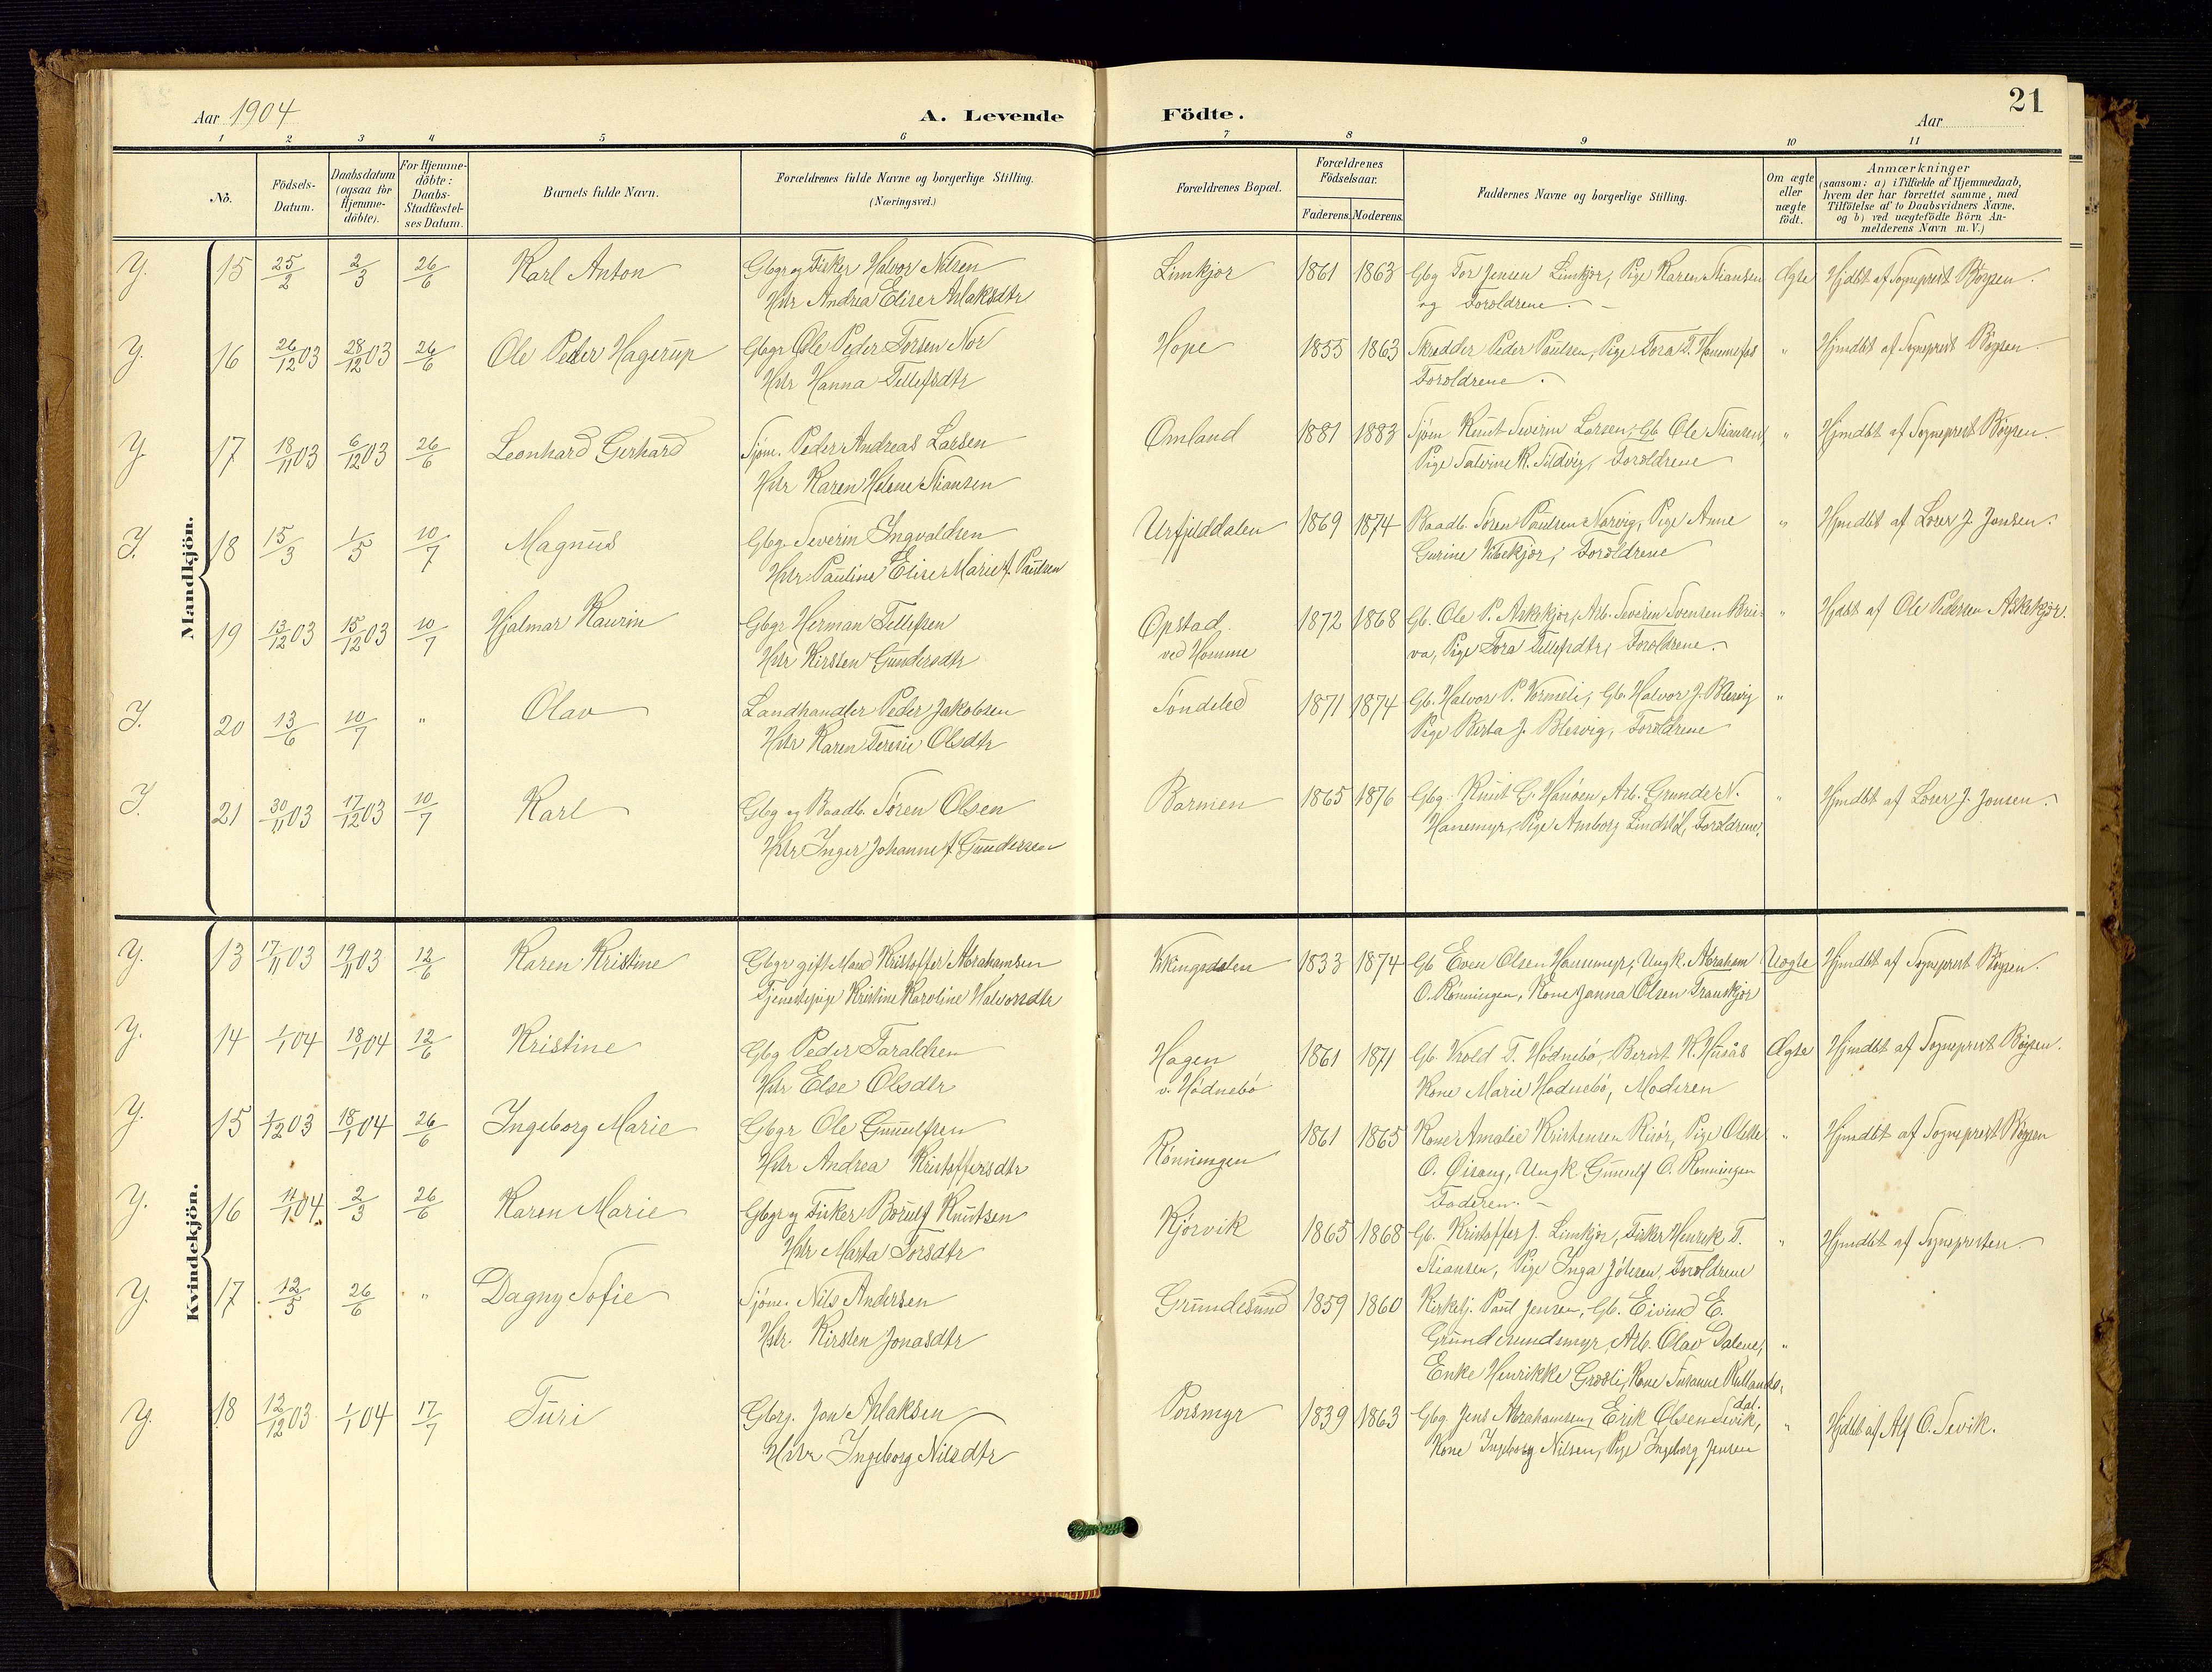 Aar 1904
A. Levende Födte.
Aar
21
1 2 3 4 5 6 7 8 9 10 11
No.
Födsels-Datum.
Daabsdatum (ogsaa for Hjemme-döbte).
For Hjemme-döbte: Daabs-Stadfæstel-ses Datum.
Barnets fulde Navn.
Forældrenes fulde Navne og borgerlige Stilling. (Næringsvei.)
Forældrenes Bopæl.
Forældrenes Födselsaar.
Faderens. Moderens.
Faddernes Navne og borgerlige Stilling.
Om ægte eller uægte födt.
Anmærkninger
(saasom: a) i Tilfælde af Hjemmedaab,
hvem der har forrettet samme, med
Tilföielse af to Daabsvidners Navne,
og b) ved uægtefödte Börn An-
melderens Navn m. V.)
Mandkjön.
Y. 15 25/2 2/3 26/6 Karl Anton Gbgr og Fisker Halvor Nilsen Limkjær 1861 1863 Gbg Tor Jensen Limkjær, Pige Karen Stiansen Ægte Hjdbt af Sogneprest Böysen.
Hstr Andrea Elise Aslaksdtr og Forældrene.
Y. 16 26/12 03 28/12 03 26/6 Ole Peder Hagerup Gbgr Ole Peder Torsen Nor Hope 1855 1863 Skrædder Peder Paulsen, Pige Tora T. " Hjmdbt af Sogneprest Böysen
Hstr Hanna Tellefsdtr Forældrene.
Y. 17 18/11 03 6/12 03 26/6 Leonhard Gerhard Sjöm. Peder Andreas Larsen Omland 1881 1883 Sjöm Knut Severin Larsen, Gb. Ole Stiansen, " Hjmdbt af Sogneprest Böysen.
Hstr Karen Helene Stiansen Pige K. Sildvig, Forældrene
Y. 18 15/3 1/5 10/7 Magnus Gbg. Severin Ingvaldsen Urfjelddalen 1869 1874 Baadb. Sören Paulsen Narvig, Pige Anne " Hjmdbt af Lærer J. Jonsen.
Hstr Pauline Elise Marie f. Paulsen Gurine Vibekjær, Forældrene
19 13/12 03 15/12 03 10/7 Hjalmar Kaurin Gbgr Herman Tellefsen Opstad 1872 1868 Gb. Ole P. Askekjær, Arb. Severin Svensen " Hjdbt af Ole Pedersen Askekjær.
Hstr Kirsten Gundersdtr ved Homme Pige Tora Tellefsdtr, Forældrene.
Y. 20 13/6 10/7 " Olav Landhandler Peder Jakobsen Söndeled 1871 1874 Gb. Halvor P. Vormeli, Gb. Halvor J. Blesvig "
Hstr Karen Teresie Olsdtr Pige Berta J. Blesvig, Forældrene
Y. 21 30/11 03 17/12 03 10/7 Karl Gbg og Baadb. Sören Olsen Barmen 1865 1876 Gbg. Knut G. Havöen, Arb. Grunde N. " Hjmdbt af Lærer J. Jonsen.
Hstr Inger Johanne f. Gundersen Hanemyr, Pige Amborg Lindstöl, Forældrene.
Kvindekjön.
Y. 13 17/11 03 19/11 03 12/6 Karen Kristine Gbgr gift Mand Kristoffer Abrahamsen Vikingsdalen 1833 1874 Gb Even Olsen Hansemyr, Ungk. Abraham Uægte Hjmdbt af Sogneprest Böysen.
Tjenestepige Kristine Karoline Halvorsdtr O. Rönningen, Kone Janna Olsen Tranekjær
Y. 14 1/1 04 18/1 04 12/6 Kristine Gbg Peder Taraldsen Hagen 1861 1871 Gb. T. Hödnebö, Bernt K. Husås Ægte Hjmdbt af Sogneprest Böysen.
Hstr Else Olsdtr v. Hödnebö Kone Marie Hödnebö, Moderen
Y. 15 1/12 03 18/1 04 26/6 Ingeborg Marie Gbgr Ole Gunulfsen Rönningen 1861 1865 Kone Amalie Kristensen Risör, Pige Olette " Hjmdbt af Sogneprest Böysen
Hstr Andrea Kristoffersdtr O. Öisang, Ungk. Gunulf O. Rönningen
Faderen.
Y. 16 11/1 04 2/3 26/6 Karen Marie Gbgr og Fisker Borulf Knutsen Kjörvik 1865 1868 Gb. Kristoffer J. Limkjær, Fisker Henrik T. " Hjmdbt af Sognepresten.
Hstr Marta Torsdtr Stiansen, Pige Inga Forældrene
Y. 17 12/5 26/6 " Dagny Sofie Sjöm. Nils Andersen Grundesund 1859 1860 Kirketj. Paul Jensen, Gb. Eivind E.
Hstr. Kirsten Jonasdtr Grundesundsmyr, Arb. Olav Dalene, "
Enke Henrikke Grosli, Kone Susanne Rutlands-
dal.
Y. 18 12/12 03 1/1 04 17/7 Turi Gbrg. Jon Aslaksen Porsmyr 1839 1863 Gbg. Jens Abrahamsen, Erik Olsen Sevik, " Hjdbt af Alf O. Sevik.
Hstr Ingeborg Nilsdtr Kone Ingeborg Nilsen, Pige Ingeborg Jensen